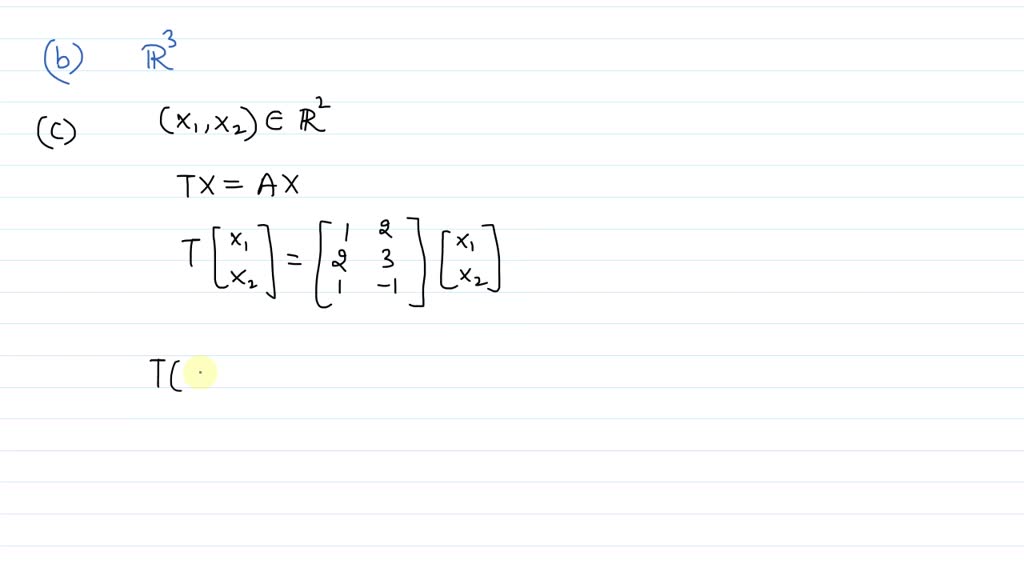 (b) ℝ³
(c) (x₁, x₂) ∈ ℝ²
TX = AX
T [x₁; x₂] = [1 2; 2 3; 1 -1] [x₁; x₂]
T(